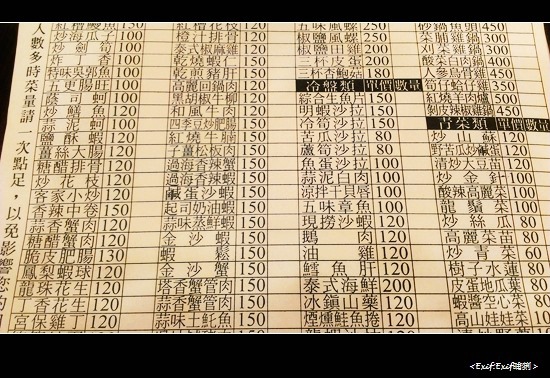 人數多時菜量請一次點足,以免影響您的用
炒海瓜子 100
炒劍筍 100
炸丁香 100
特味吳郭魚
五更腸旺
蔭豉蚵 100
炒鱔魚
蒜泥蚵
鹽酥蝦 120
薑絲大腸 120
糖醋排骨 120
炒花枝 120
客家小炒 120
香辣中卷 150
蒜香蟹肉 120
糖醋蟹肉 120
脆皮肥腸 130
鳳梨蝦球 120
龍珠花生 120
丁香花生 100
宮保雞丁 120
橙汁排骨 120
泰式椒麻雞 120
乾燒蝦仁 150
乾煎豬肝 150
高麗回鍋肉 120
黑胡椒牛柳 120
和風牛肉 120
四季豆炒肥腸 150
紅燒牛腩 150
子薑松板肉 150
過海香辣蟹 150
過海香辣蝦 150
鹹蛋沙蝦 150
起司奶油蝦 150
蒜味蒸鮮蝦 150
金沙蝦 150
蝦鬆 150
金沙蟹 150
塔香蟹管肉 150
蒜香蟹管肉 150
蒜味土魠魚 150
五味風螺 250
椒鹽風螺 200
椒鹽田雞 200
三杯皮蛋 200
三杯杏鮑菇 180
冷盤類 單價 數量
綜合生魚片 150
明蝦沙拉 150
冷筍沙拉 150
苦瓜沙拉 80
蘆筍沙拉 80
魚蛋沙拉 100
蒜泥白肉 100
涼拌干貝唇 100
五味章魚 100
現撈沙蝦 100
鵝肉 100
油雞 120
鱈魚肝 120
泰式海鮮 200
冰鎮山藥 120
煙燻鮭魚捲 120
砂鍋魚頭 450
菜脯雞鍋 450
刈菜雞鍋 450
酸菜白肉鍋 400
人參烏骨雞 450
筍仔蛤仔雞
紅燒羊肉爐 500
剝皮辣椒雞鍋 350
青菜類 單價 數量
炒山蘇 120
野苦瓜炒鹹蛋 120
清炒大豆苗 120
炒金針 100
酸辣高麗菜 100
龍鬚菜 100
炒絲瓜 80
高麗菜苗 80
炒青菜 60
樹子水蓮 80
皮蛋地瓜葉 80
蝦醬空心菜 80
高山娃娃菜 100